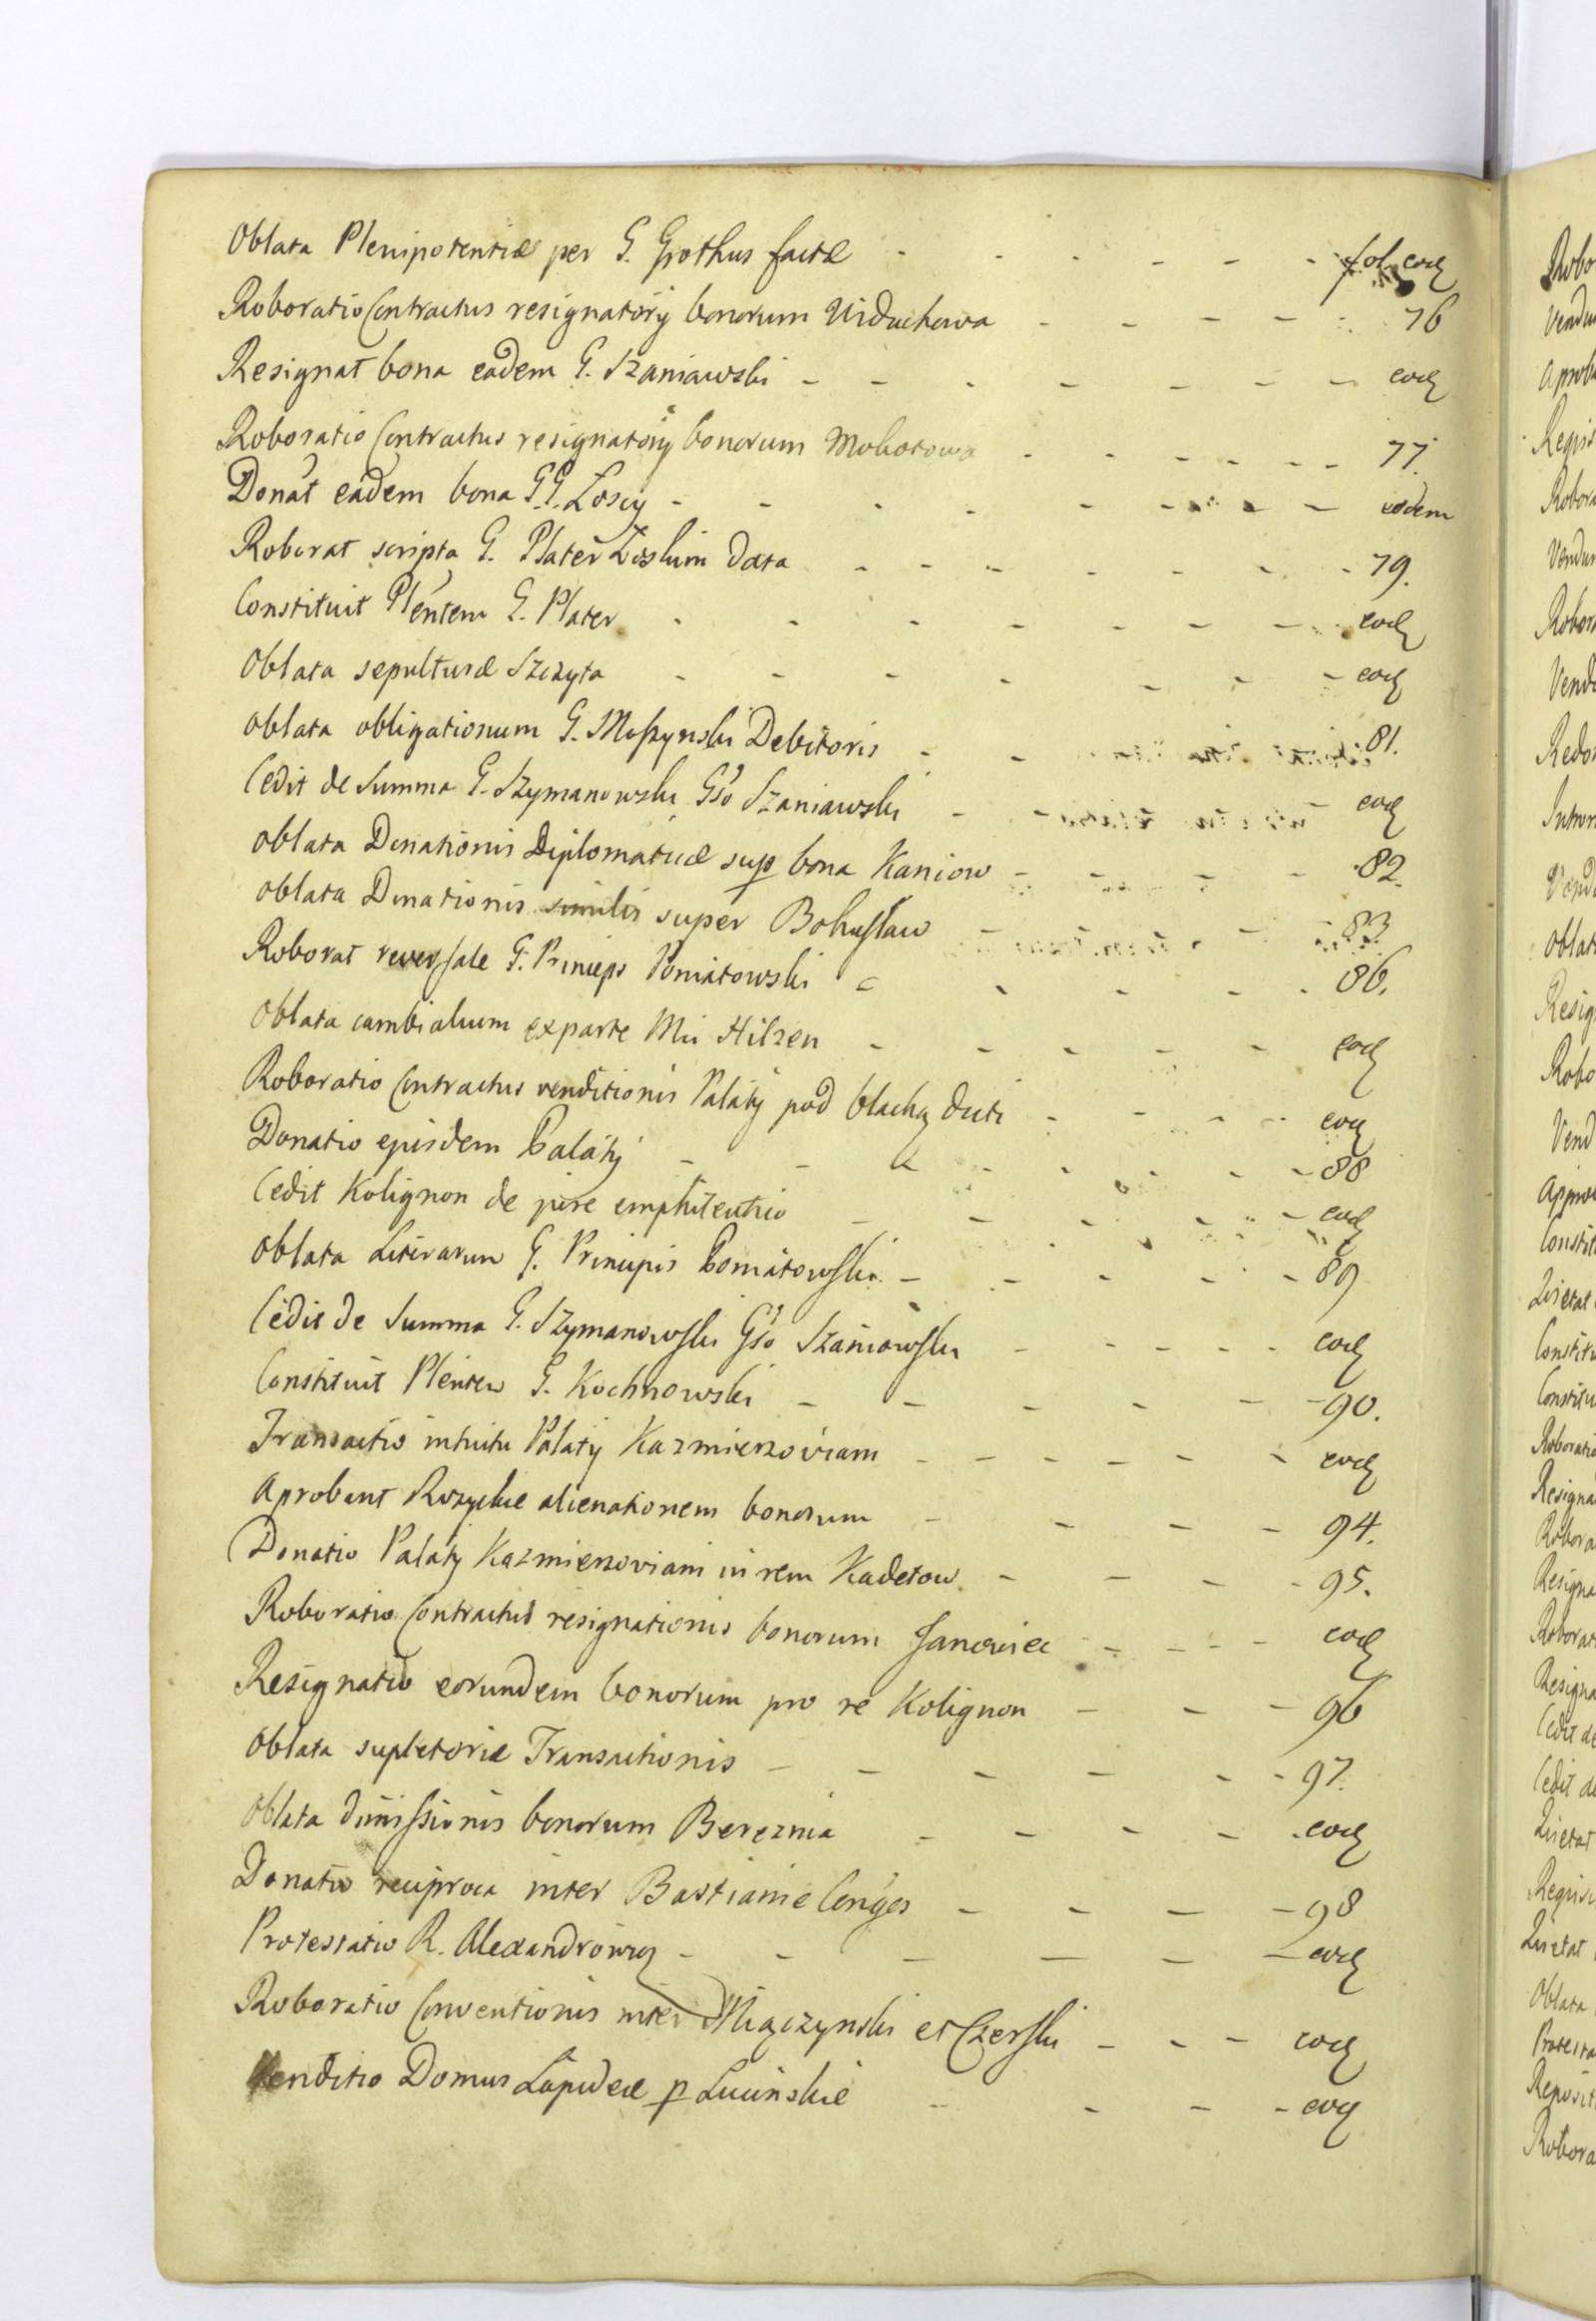 Oblata Plenipotentiæ per G. Grothus factæ - - - - - - fol. eod
Roboratio Contractus resignatorÿ bonorum Widuchowa - - - - 76
Resignat bona eadem G. Szaniawski - - - - - - - eod
Roboratio Contractus resignatorÿ bonorum Mokotowa - - - - - - 77.
Donat eadem bona G.G. Łoscy - - - - - - - eodem
Roborat scripta G. Plater data - - - - - - - 79.
Constituit Plentem G. Plater - - - - - - - eod
Oblata sepulturæ Szczyta - - - - - - - eod
Oblata obligationum G. Moszynski Debitoris - - - 81.
Cedit de Summa G. Szymanowski Gso Szaniawski - - - eod
Oblata Donationis Diplomaticæ sup bona Kaniow - - - - 82.
Oblata Donationis similis super Bohusław - - - 83.
Roborat reversale G. Princeps Poniatowski - - - - - 86.
Oblata cambialium exparte Mii Hilzen - - - - - eod
Roboratio Contractus venditionis Palatÿ pod blachą dicti - - - - eod
Donatio ejusdem Palatÿ - - - - - - - 88
Cedit Kolignon de jure emphiteutico - - - - - eod
Oblata Literarum G. Principis Poniatowski - - - - - 89
Cedit de Summa G. Szymanowski Gso Szaniawski - - - - - eod
Constituit Plentem G. Kochnowski - - - - - - 90.
Transactio intuitu Palatÿ Kazmierzoviani - - - - - - eod
Aprobant Rozyckie alienationem bonorum - - - - 94.
Donatio Palatÿ Kazmierzoviani in rem Kadetow - - - - 95.
Roboratio Contractus resignationis bonorum Janowiec - - - - eod
Resignatio eorundem bonorum pro re Kolignon - - - 96
Oblata supletoriæ Transactionis - - - - - - 97.
Oblata dimissionis bonorum Bereznia - - - - - eod
Donatio reciproca inter Bastianie Conges - - - - 98
Protestatio R. Alexandrowicz - - - - - - eod
Roboratio Conventionis inter Miączynski et Czerski - - - eod
Venditio Domus Lapideæ p Lucinskie - - - - eod